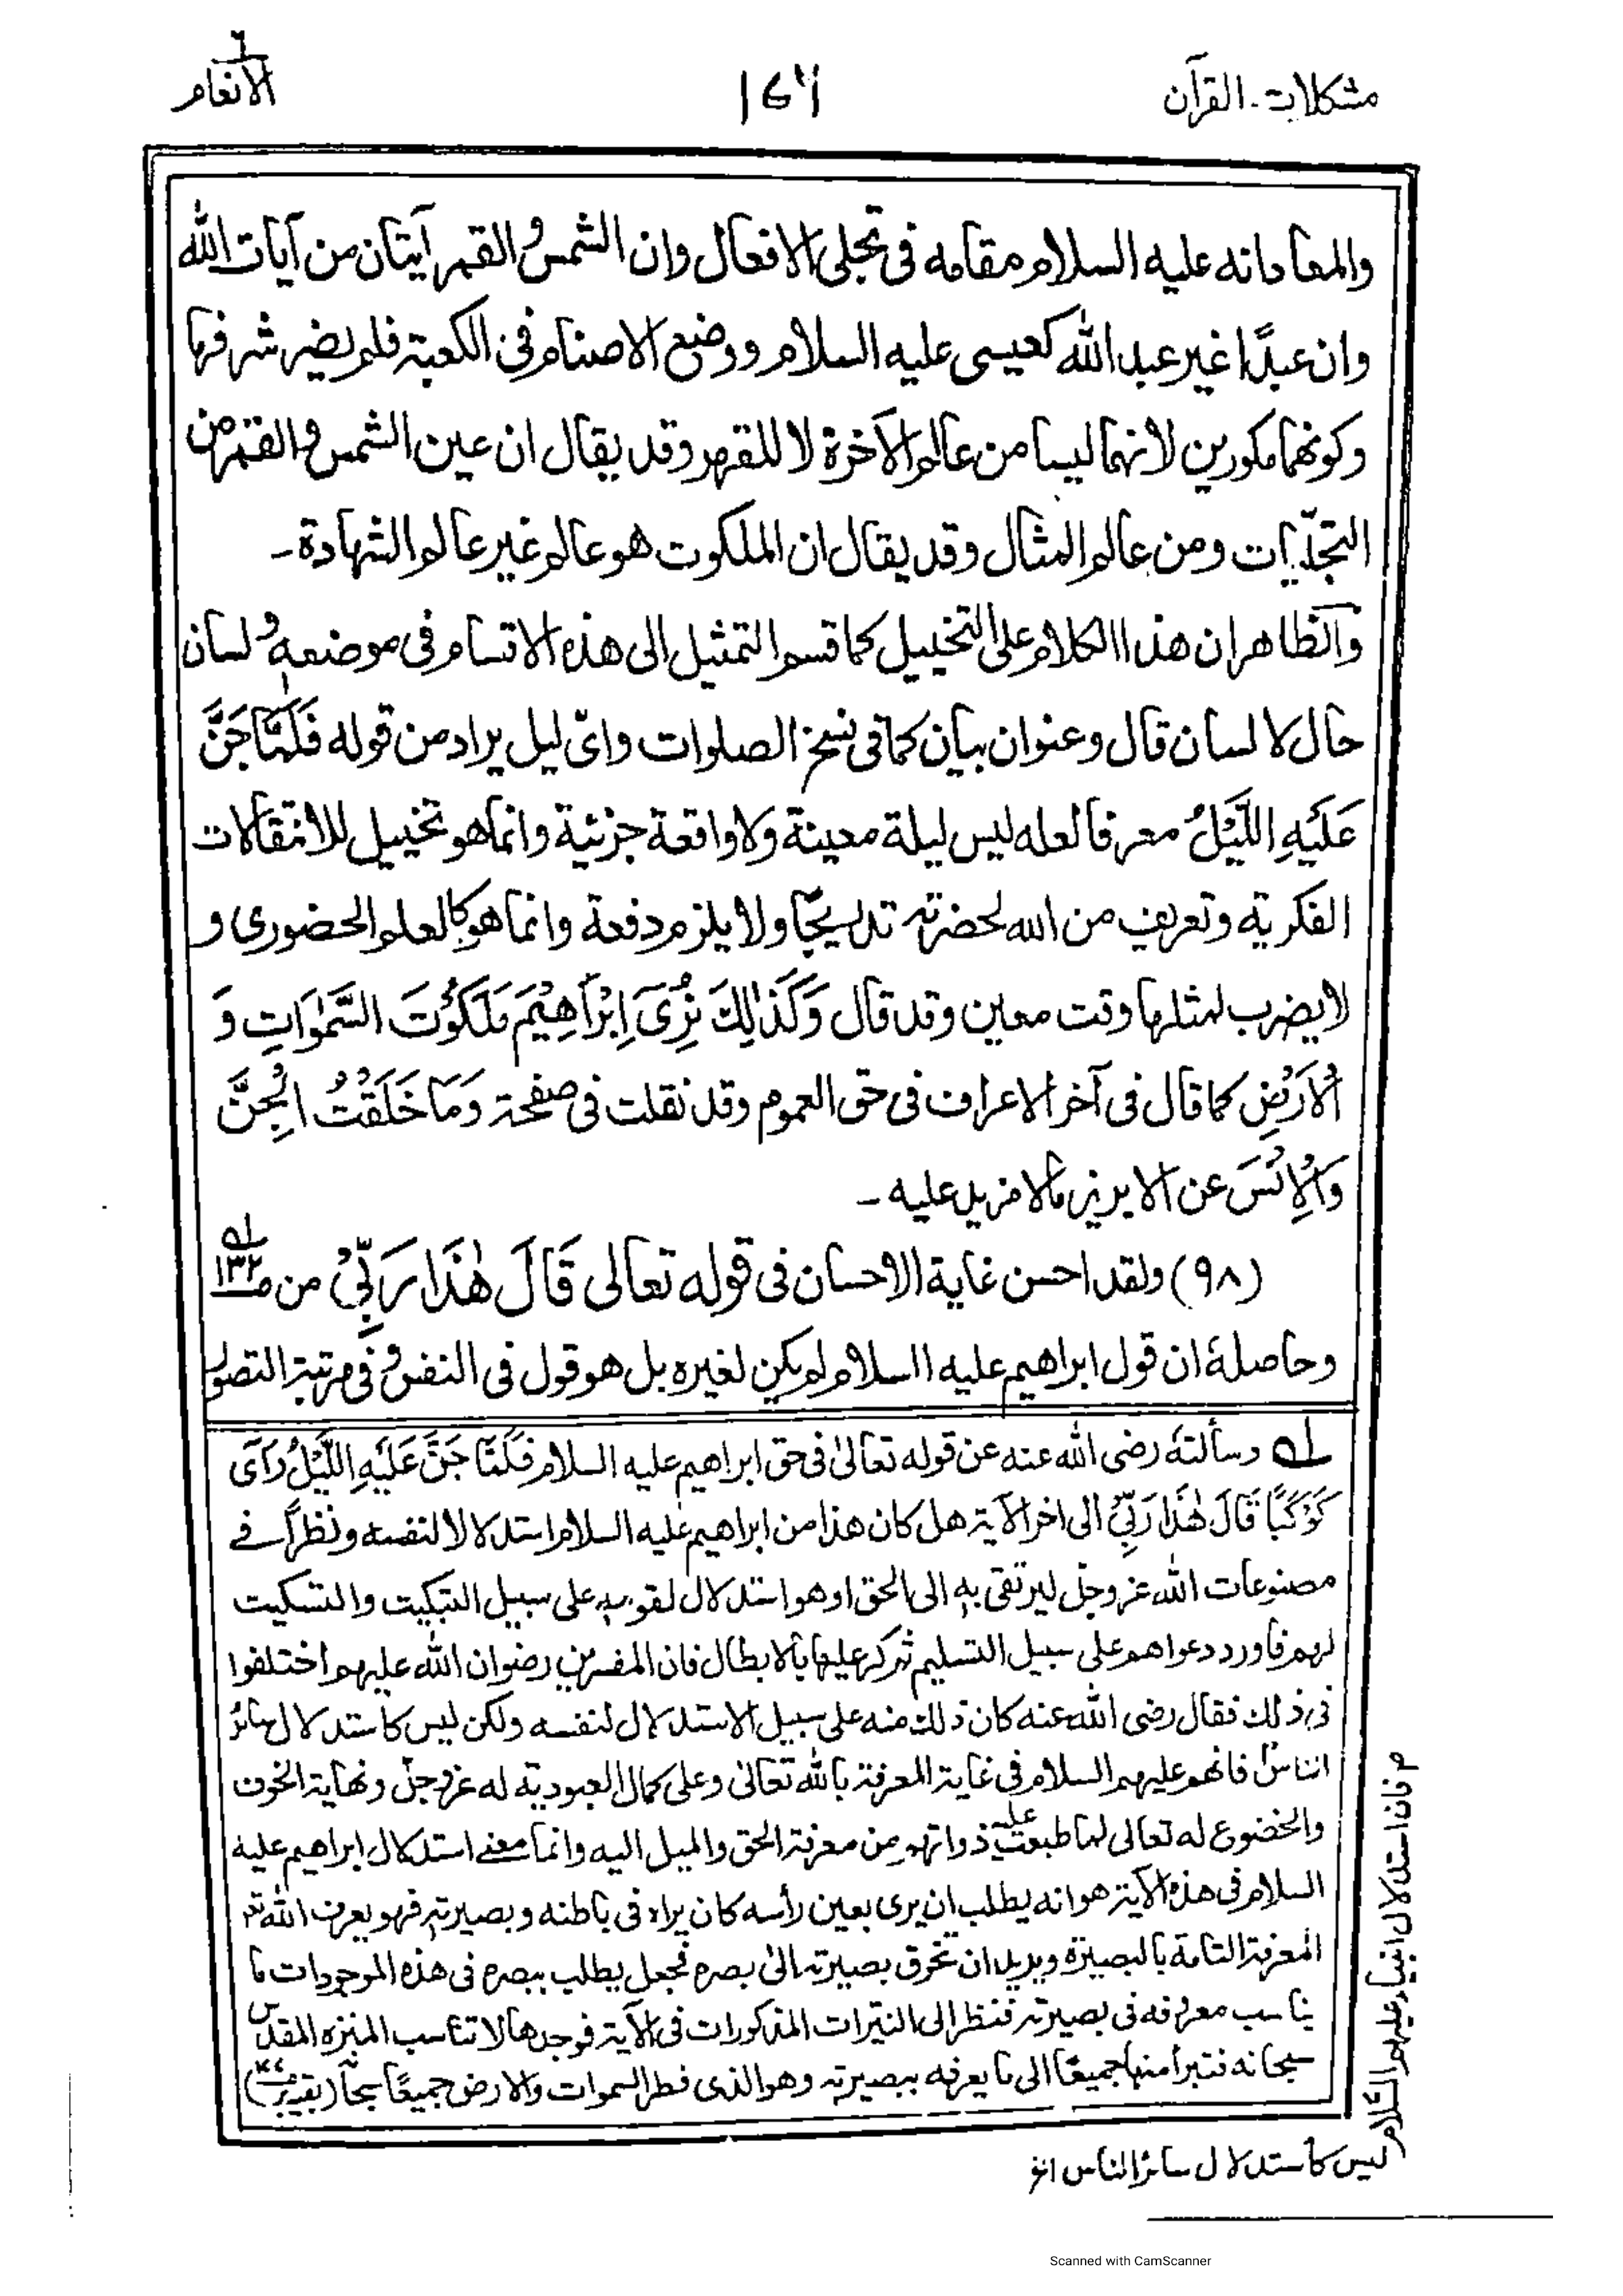 مشكلات القرآن
١٧٦
٦ الانعام
والمعاد انه عليه السلام مقامه فى تجلى الافعال وان الشمس والقمر آيتان من آيات الله
وان عبدا غير عبد الله كعيسى عليه السلام ووضع الاصنام فى الكعبة فلم يضر شرفها
وكونهما مكورين لانهما ليسا من عالم الآخرة لا للقهر وقد يقال ان عين الشمس والقمر من
التجليات ومن عالم المثال وقد يقال ان الملكوت هو عالم غير عالم الشهادة ـ
والظاهر ان هذا الكلام على التخييل كما قسم التمثيل الى هذه الاقسام فى موضعه ولسان
حال لا لسان قال وعنوان بيان كما فى نسخ الصلوات واىّ ليل يراد من قوله فَلَمَّا جَنَّ
عَلَيْهِ اللَّيْلُ معرفا لعله ليس ليلة معينة ولا واقعة جزئية وانما هو تخييل للانتقالات
الفكرية وتعريف من الله لحضرته تدريجًا ولا يلزم دفعة وانما هو كالعلم الحضورى و
لا يضرب لمثلها وقت معين وقد قال وَكَذٰلِكَ نُرِىْٓ اِبْرَاهِيْمَ مَلَكُوْتَ السَّمٰوَاتِ وَ
الْاَرْضِ كما قال فى آخر الاعراف فى حق العموم وقد نقلت فى صفحة وَمَا خَلَقْتُ الْجِنَّ
وَالْاِنْسَ عن الابريز مالا مزيد عليه ـ
(٩٨) ولقد احسن غاية الاحسان فى قوله تعالى قَالَ هٰذَا رَبِّىْ من صـ١٣٢ له
وحاصله ان قول ابراهيم عليه السلام لم يكن لغيره بل هو قول فى النفس وفى مرتبة التصور
له وسألته رضى الله عنه عن قوله تعالىٰ فى حق ابراهيم عليه السلام فَلَمَّا جَنَّ عَلَيْهِ اللَّيْلُ رَاٰى
كَوْكَبًا قَالَ هٰذَا رَبِّىْ الى اخر الآية هل كان هذا من ابراهيم عليه السلام استدلالا لنفسه ونظراً فے
مصنوعات الله عز وجل ليرتقى به الى الحق او هو استدلال لقومه على سبيل التبكيت والتسكيت
لهم فاورد دعواهم على سبيل التسليم ثم كر عليها بالابطال فان المفسرين رضوان الله عليهم اختلفوا
فى ذلك فقال رضى الله عنه كان ذلك منه على سبيل الاستدلال لنفسه ولكن ليس كاستدلال سائر
الناس فانهم عليهم السلام فى غاية المعرفة بالله تعالىٰ وعلى كمال العبودية له عز وجل ونهاية الخوف
والخضوع له تعالى لما طبعت عليه ذواتهم من معرفة الحق والميل اليه وانما معنے استدلال ابراهيم عليه
السلام فى هذه الآية هو انه يطلب ان يرى بعين رأسه كان يراه فى باطنه وبصيرته فهو يعرف الله تعـ
المعرفة التامة بالبصيرة ويريد ان تخرق بصيرته الىٰ بصره فجعل يطلب ببصره فى هذه الموجودات ما
يناسب معروفه فى بصيرته فنظر الى النيّرات المذكورات فى الآية فوجدها لا تناسب المنزه المقدس
سبحانه فتبرأ منها جميعًا الى ما يعرفه ببصيرته وهو الذى فطر السموات والارض جميعًا سبحاً (بقيه بر)
م فان استدلال انبياء عليهم السّلام
ليس كأستدلال سائر الناس الخ
Scanned with CamScanner